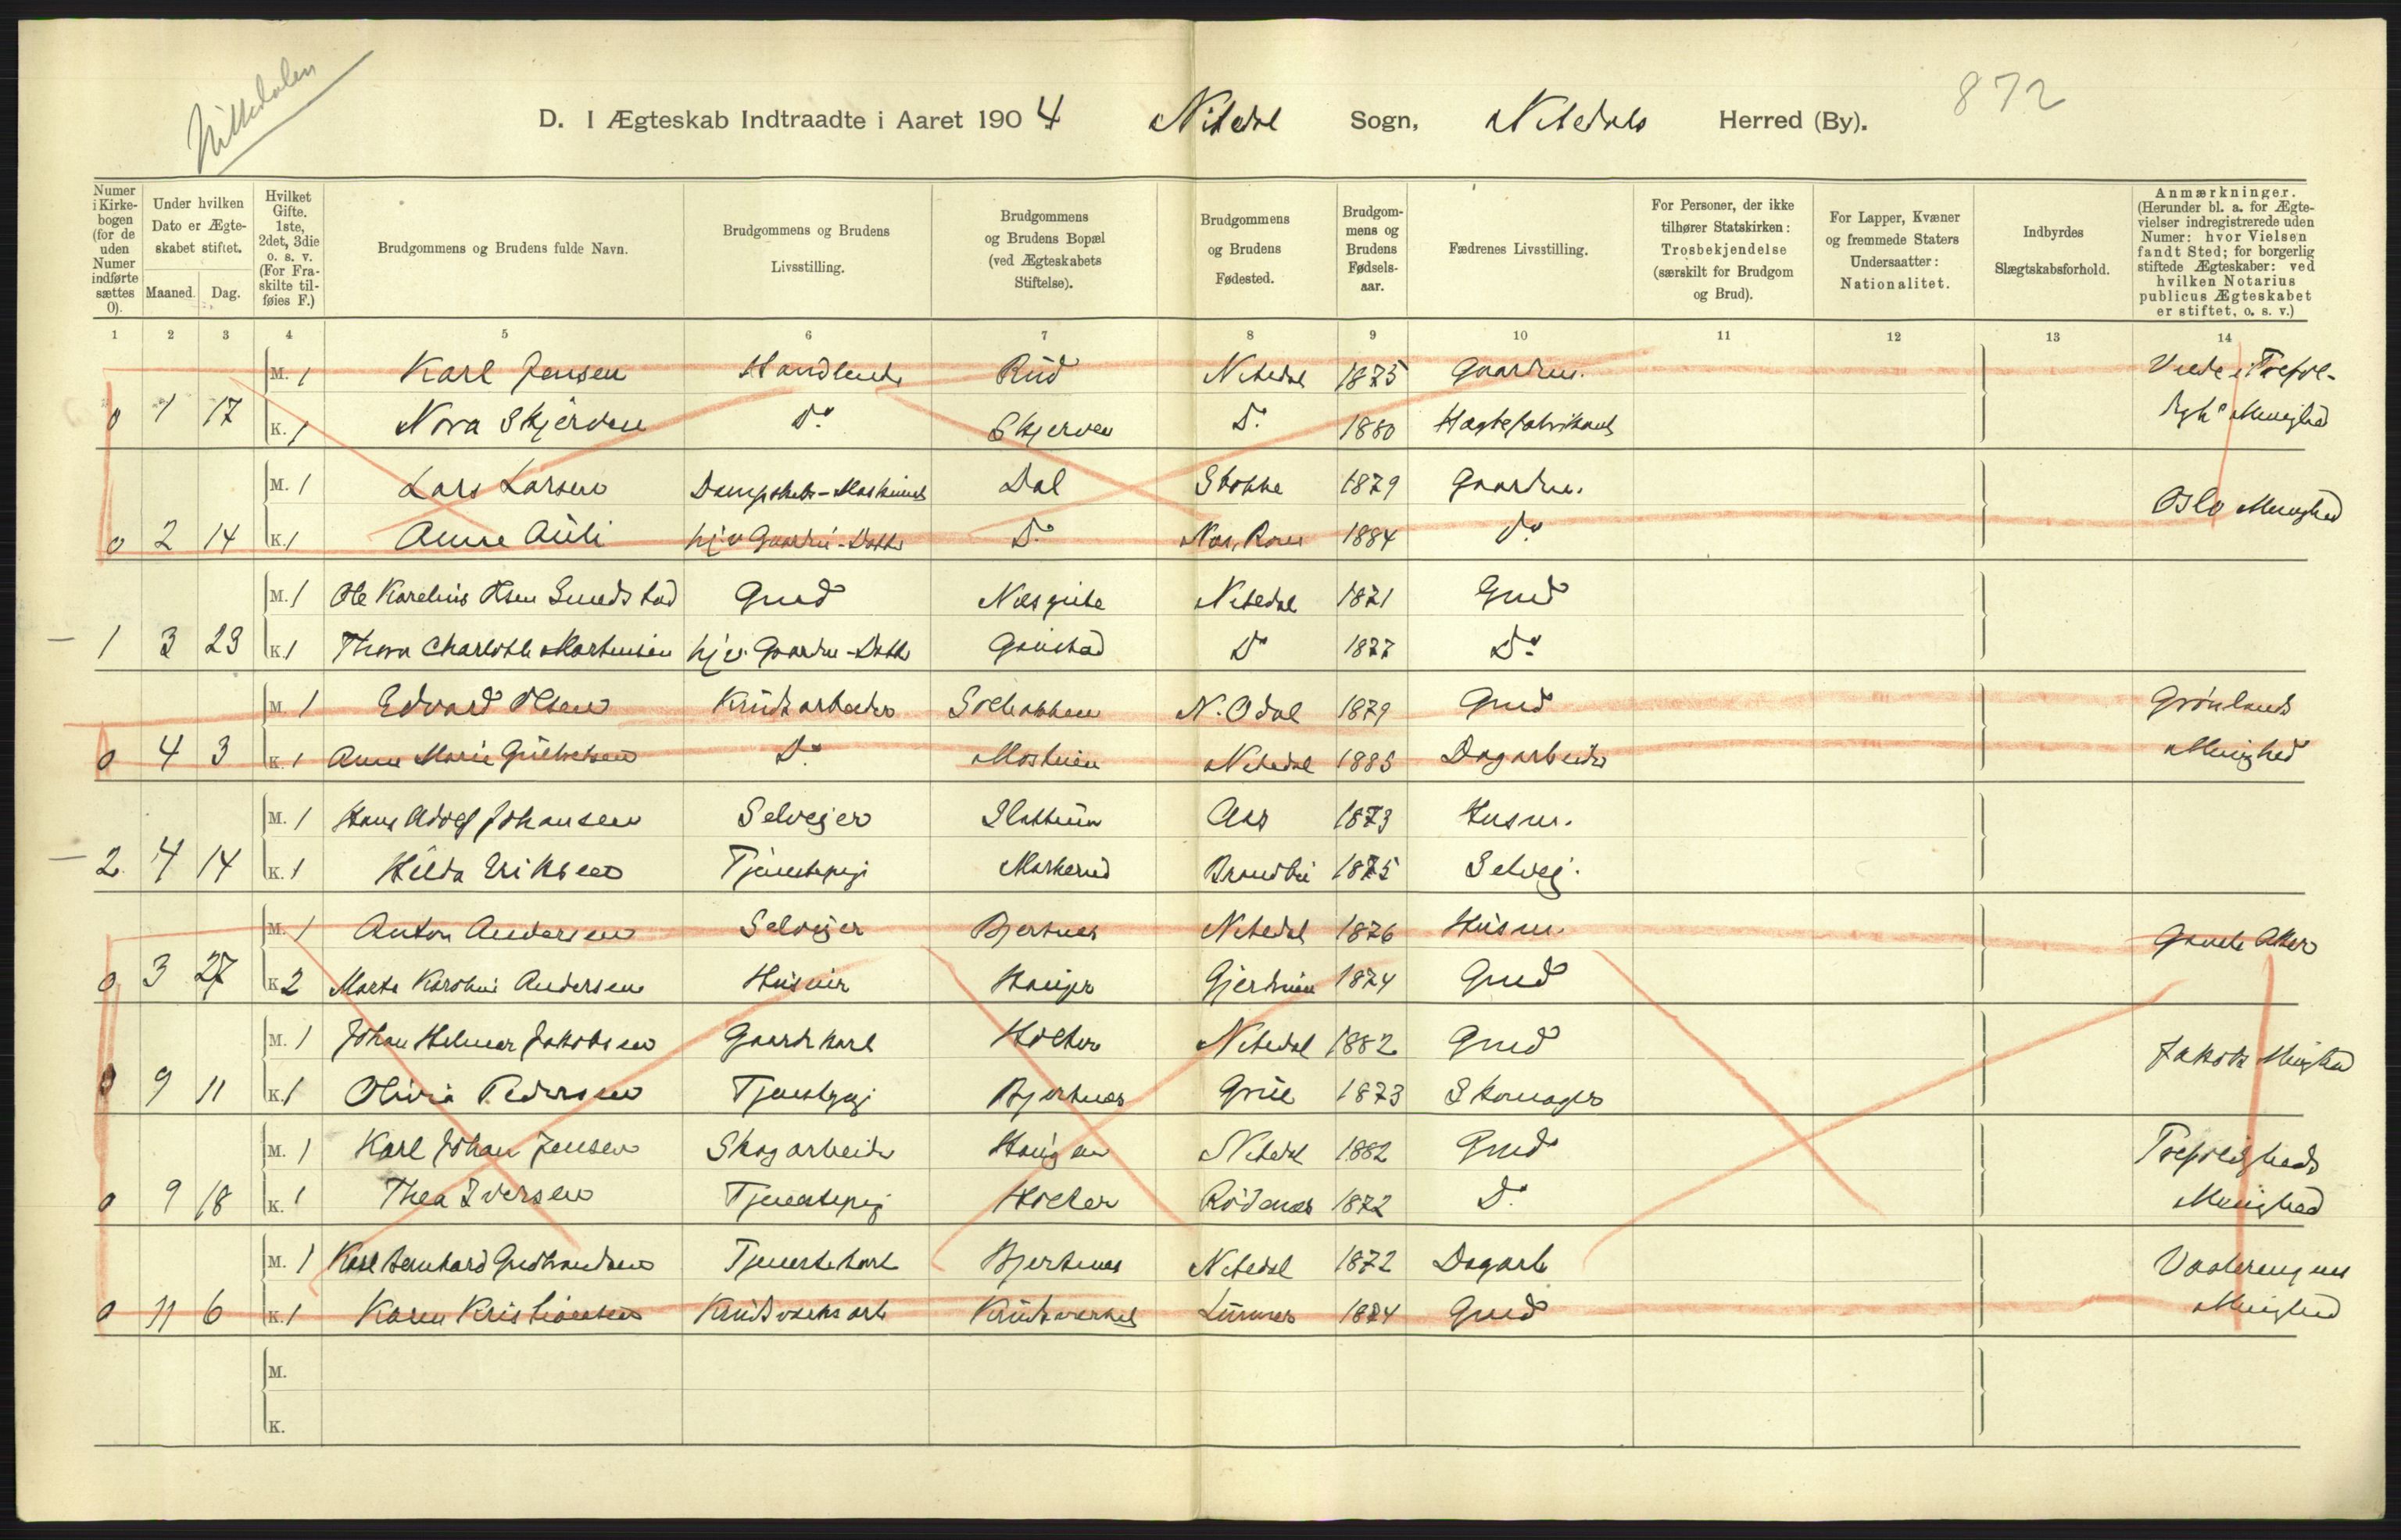 Nittedalen
872
D. I Ægteskab Indtraadte i Aaret 1904 Nitedal Sogn, Nitedals Herred (By).
Numer i Kirkebogen (for de uden Numer indførte sættes 0). | Under hvilken Dato er Ægteskabet stiftet. Maaned. Dag. | Hvilket Gifte. 1ste, 2det, 3die o. s. v. (For Fraskilte tilføies F.) | Brudgommens og Brudens fulde Navn. | Brudgommens og Brudens Livsstilling. | Brudgommens og Brudens Bopæl (ved Ægteskabets Stiftelse). | Brudgommens og Brudens Fødested. | Brudgommens og Brudens Fødselsaar. | Fædrenes Livsstilling. | For Personer, der ikke tilhører Statskirken: Trosbekjendelse (særskilt for Brudgom og Brud). | For Lapper, Kvæner og fremmede Staters Undersaatter: Nationalitet. | Indbyrdes Slægtskabsforhold. | Anmærkninger. (Herunder bl. a. for Ægtevielser indregistrerede uden Numer: hvor Vielsen fandt Sted; for borgerlig stiftede Ægteskaber: ved hvilken Notarius publicus Ægteskabet er stiftet, o. s. v.)
1 2 3 4 5 6 7 8 9 10 11 12 13 14
M. 1 Karl Jensen Handlende Rud Nitedal 1875 Gaardm. Viede i Trefol-
0 1 17 K. 1 Nora Skjerven Do Skjerven Do 1880 Hægtefabrikant Menighed
M. 1 Lars Larsen Dal Stokke 1879 Gaardm. Oslo Menighed
0 2 14 K. 1 Anne Auli hjv Gaardm.-Datter Do Nes, Rom 1884 Do
M. 1 Ole Karelius Olsen Gmd Nitedal 1871 Gmd
1 3 23 K. 1 Thora Charlotte Martinsen hjv. Gaardm-Datt Gaustad Do 1877 Do
M. 1 Edvard Olsen Krudtarbeider N. Odal 1879 Gmd Grønlands
0 4 3 K. 1 Anne Marie Gulbrandsen Do Nitedal 1885 Dagarbeider Menighed
M. 1 Hans Adolf Johansen Selvejer Slattum Aas 1873 Husm.
2 4 14 K. 1 Hilda Eriksen Tjenestepig Markerud Brandbu 1875 Selvej.
M. 1 Anton Andersen Selvejer Bjertnes Nitedal 1876 Husm. Gamle Aker
0 3 27 K. 2 Marte Karoline Andersen Haugen Gjerdrum 1874 Gmd
M. 1 Johan Helmer Jakobsen Gaardskarl Holter Nitedal 1882 Gmd Jakobs Menighed
0 9 11 K. 1 Olivia Pedersen Tjenestepig Bjertnes Grue 1873 Skomager
M. 1 Karl Johan Jensen Skogarbeider Haugen Nitedal 1882 Gmd Trefoldigheds
0 9 18 K. 1 Thea Iversen Tjenestepig Holter Rødenes 1872 Do Menighed
M. 1 Karl Bernhard Gudbrandsen Tjenestekarl Bjertnes Nitedal 1872 Dagarb Vaalerengens
0 11 6 K. 1 Karen Kristiansen Krudtværksarb Krudtværket Lunner 1884 Gmd Menighed
M.
K.